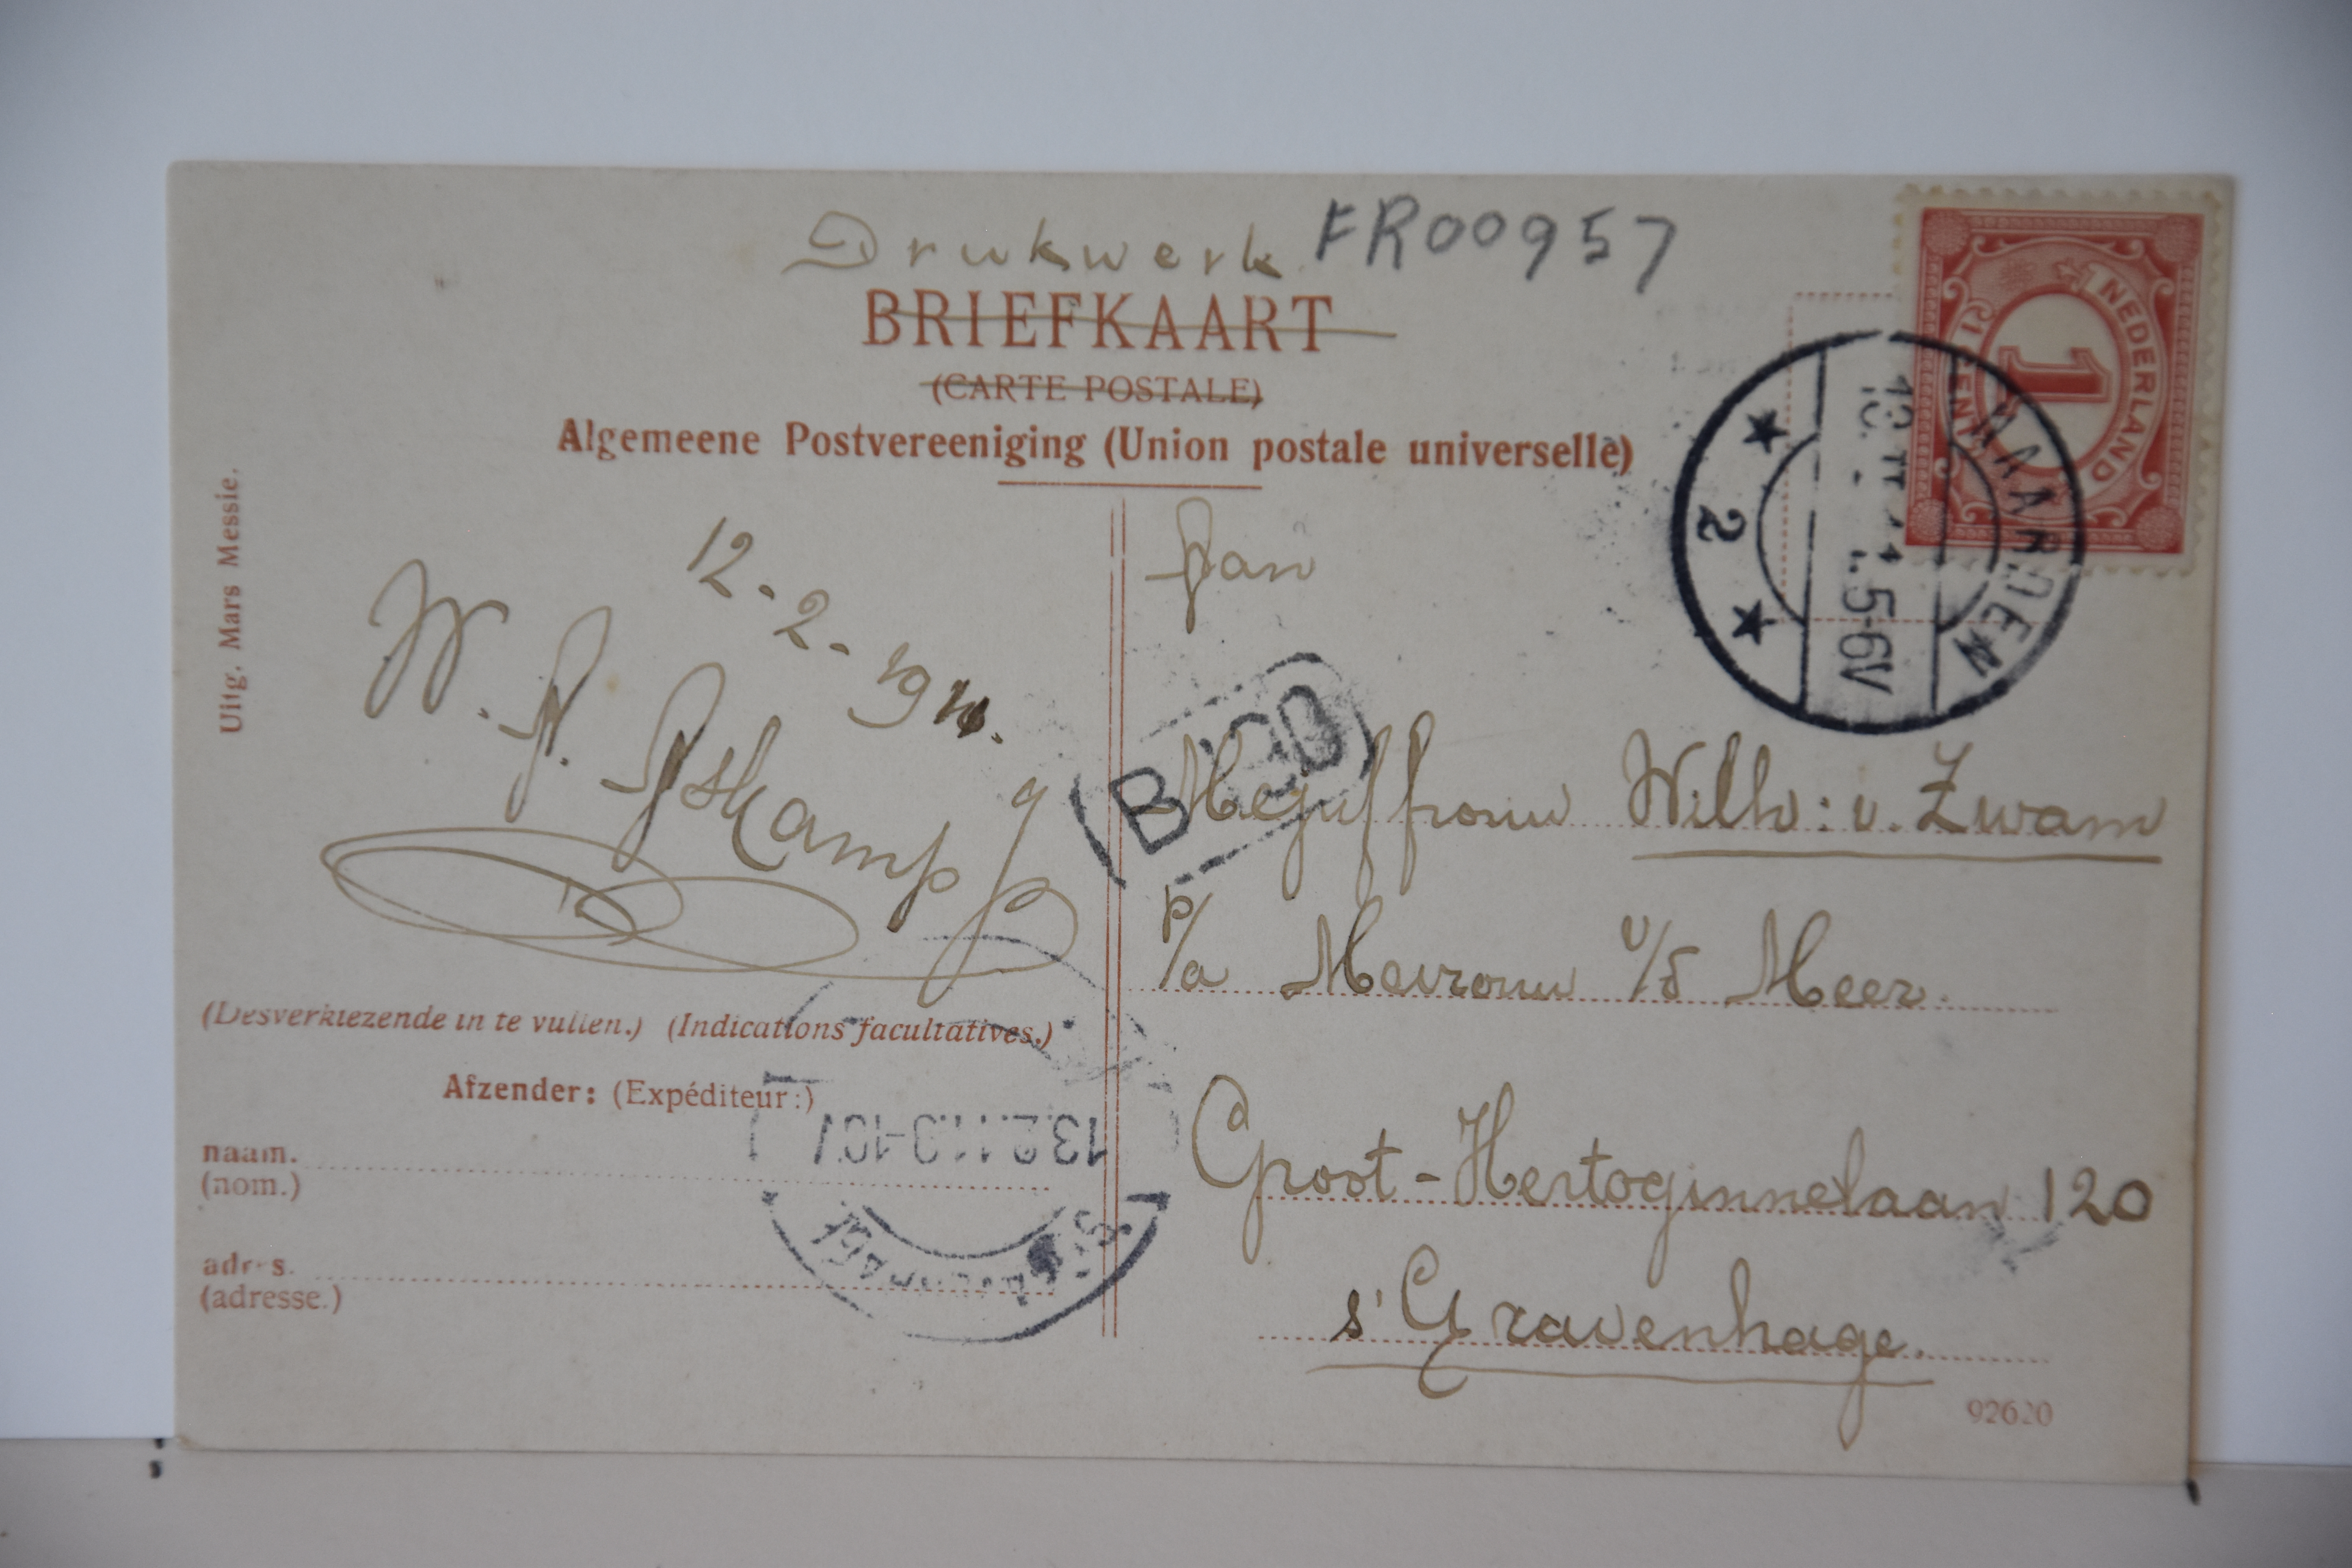 Drukwerk FR00957
BRIEFKAART
(CARTE POSTALE)
Algemeene Postvereeniging (Union postale universelle)
Uitg. Mars Messie.
1 CENT NEDERLAND
NAARDEN
5-6V
2
12-2-1911.
W. A.
Aan
B
Mejuffrouw Wilh: v. Zwam
p/a Mevrouw v/d Meer.
Groot-Hertoginnelaan 120
s'Gravenhage.
(Desverkiezende in te vullen.) (Indications facultatives.)
Afzender: (Expéditeur:)
naam.
(nom.)
adres.
(adresse.)
13.2.11.9-10V
92620